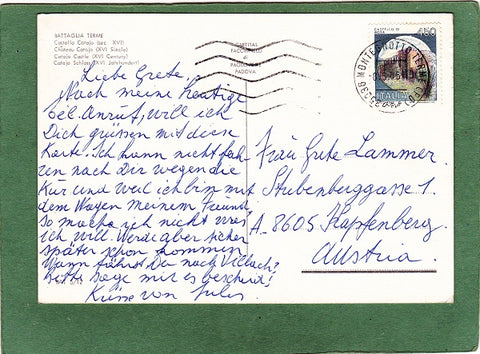 BATTAGLIA TERME
Castello Catajo (sec. XVI)
Château Catajo (XVI Siècle)
Catajo Castle (XVI Century)
Catajo Schloss (XVI Jahrhundert)
PADOVA
450
ITALIA
MONTEGROTTO TERME
Liebe Grete!
Noch meine heutige
tel. Anruf, will ich
Dich grüssen mit dieser
Karte. Ich kann nicht fah
ren nach Dir wegen die
Kur und weil ich bin mit
dem Wagen meinem Freund
so mache ich nicht was
ich will. Werde aber sicher
später schon kommen
Wann fährst Du nach Villach?
Bitte sage mir es bescheid!
Küsse von Jules
Frau Grete Lammer
Stubenberggasse 1.
A. 8605 Kapfenberg
Austria